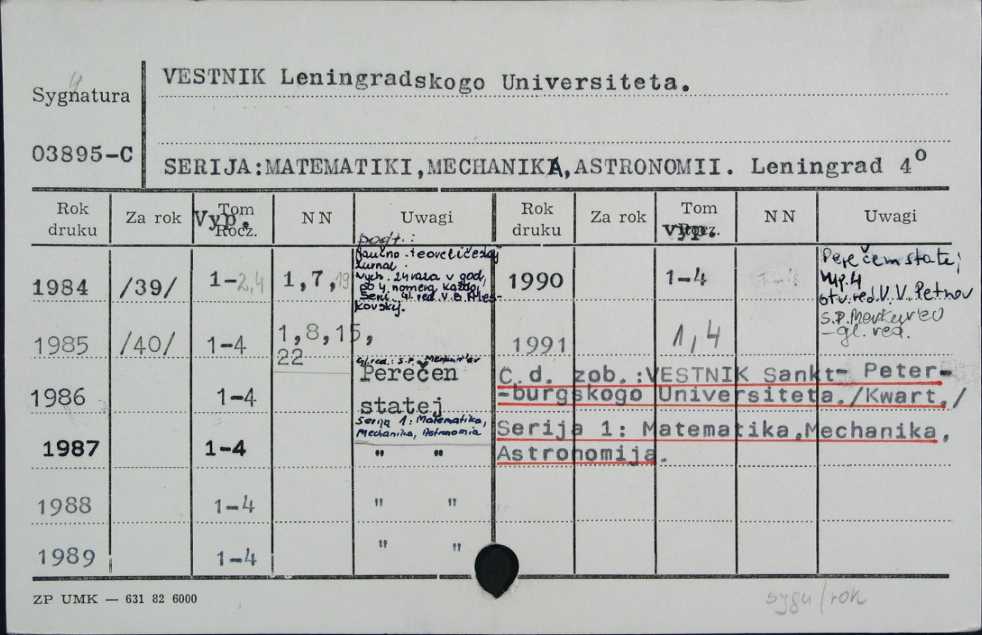 Sygnatura
VESTNIK Leningradskogo Universiteta.
03895-C
SERIJA:MATEMATIKI,MECHANIKA,ASTRONOMII. Leningrad 4°
Rok druku Za rok Tom Rocz. Vyp. NN Uwagi Rok druku Za rok Tom Rocz. vyp. NN Uwagi
1984 /39/ 1-2,4 1,7,19
podt.:
Naučno-teoretičeskij
žurnal.
Vych. 24 raza v god,
po 4 nomera každoj
serii. Gl. red. V.B. Ales-
kovskij.
1990 1-4
Perečem statej
vyp. 4
otv.red. V.V. Petrov
S.P. Merkur'ev
-gl. red.
1985 /40/ 1-4 1,8,15,
22
1991 1,4
gl. red.: S.P. Merkur'ev
1986 1-4 Perečen
statej
Serija 1: Matematika,
Mechanika, Astronomia
C.d. zob.:VESTNIK Sankt- Peter-
-burgskogo Universiteta./Kwart./
Serija 1: Matematika,Mechanika,
Astronomija.
1987 1-4 " "
1988 1-4 " "
1989 1-4 " "
ZP UMK — 631 82 6000
sygu/rok